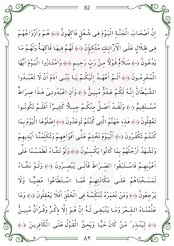 82
إِنَّ أَصْحَابَ الْجَنَّةِ الْيَوْمَ فِي شُغُلٍ فَاكِهُونَ هُمْ وَأَزْوَاجُهُمْ
فِي ظِلَالٍ عَلَى الْأَرَائِكِ مُتَّكِئُونَ لَهُمْ فِيهَا فَاكِهَةٌ وَلَهُمْ مَا
يَدَّعُونَ سَلَامٌ قَوْلًا مِنْ رَبٍّ رَحِيمٍ وَامْتَازُوا الْيَوْمَ أَيُّهَا
الْمُجْرِمُونَ أَلَمْ أَعْهَدْ إِلَيْكُمْ يَا بَنِي آدَمَ أَنْ لَا تَعْبُدُوا
الشَّيْطَانَ إِنَّهُ لَكُمْ عَدُوٌّ مُبِينٌ وَأَنِ اعْبُدُونِي هَذَا صِرَاطٌ
مُسْتَقِيمٌ وَلَقَدْ أَضَلَّ مِنْكُمْ جِبِلًّا كَثِيرًا أَفَلَمْ تَكُونُوا
تَعْقِلُونَ هَذِهِ جَهَنَّمُ الَّتِي كُنْتُمْ تُوعَدُونَ اصْلَوْهَا الْيَوْمَ بِمَا
كُنْتُمْ تَكْفُرُونَ الْيَوْمَ نَخْتِمُ عَلَى أَفْوَاهِهِمْ وَتُكَلِّمُنَا أَيْدِيهِمْ
وَتَشْهَدُ أَرْجُلُهُمْ بِمَا كَانُوا يَكْسِبُونَ وَلَوْ نَشَاءُ لَطَمَسْنَا عَلَى
أَعْيُنِهِمْ فَاسْتَبَقُوا الصِّرَاطَ فَأَنَّى يُبْصِرُونَ وَلَوْ نَشَاءُ
لَمَسَخْنَاهُمْ عَلَى مَكَانَتِهِمْ فَمَا اسْتَطَاعُوا مُضِيًّا وَلَا
يَرْجِعُونَ وَمَنْ نُعَمِّرْهُ نُنَكِّسْهُ فِي الْخَلْقِ أَفَلَا يَعْقِلُونَ وَمَا
عَلَّمْنَاهُ الشِّعْرَ وَمَا يَنْبَغِي لَهُ إِنْ هُوَ إِلَّا ذِكْرٌ وَقُرْآنٌ مُبِينٌ
لِيُنْذِرَ مَنْ كَانَ حَيًّا وَيَحِقَّ الْقَوْلُ عَلَى الْكَافِرِينَ
٨٢